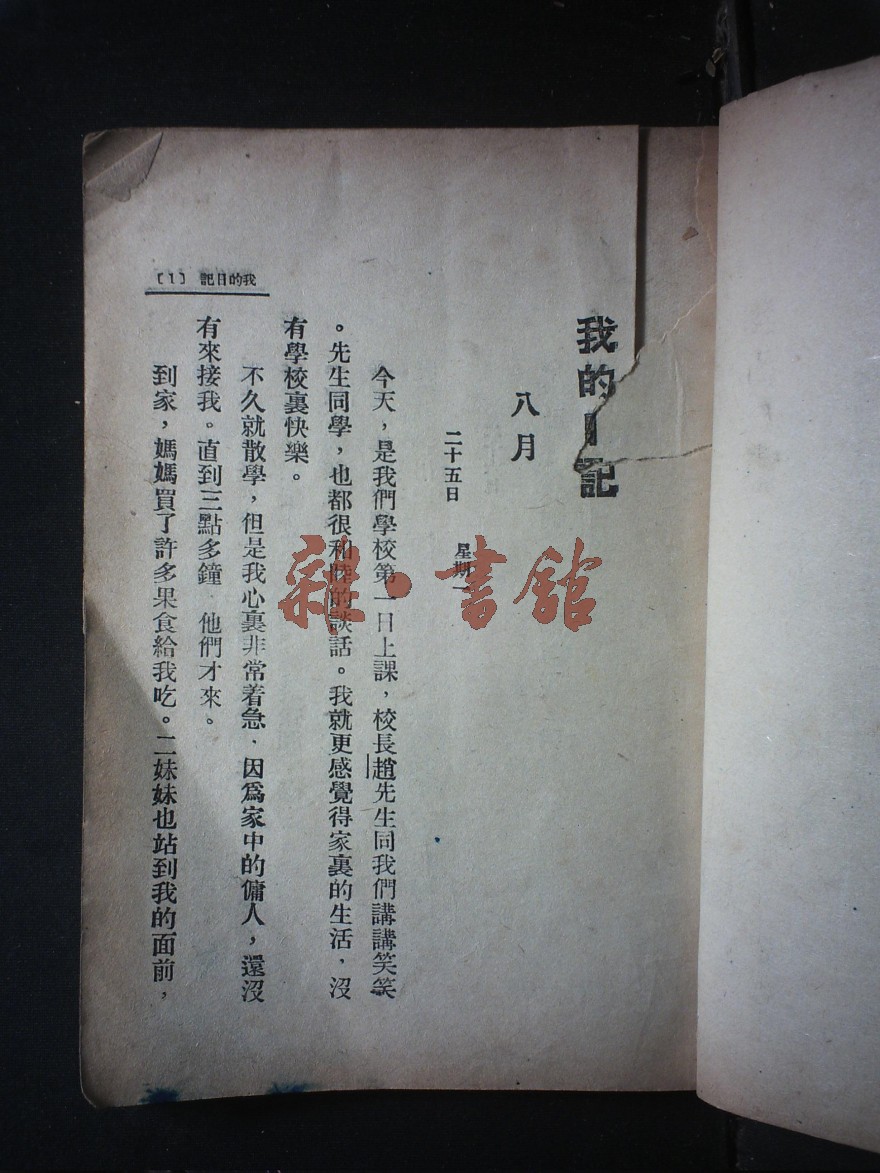 我的日記
八月
二十五日　星期一
今天，是我們學校第一日上課，校長趙先生同我們講講笑笑
。先生同學，也都很和睦的談話。我就更感覺得家裏的生活，沒
有學校裏快樂。
不久就散學，但是我心裏非常着急．因爲家中的傭人，還沒
有來接我。直到三點多鐘．他們才來。
到家，媽媽買了許多果食給我吃。二妹妹也站到我的面前，
我的日記　〔1〕
雜·書館